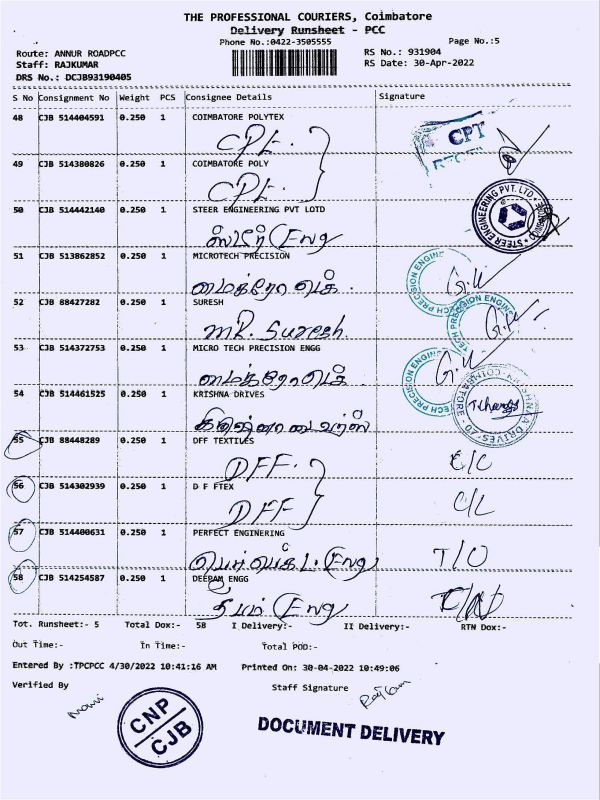 THE PROFESSIONAL COURIERS, Coimbatore
Delivery Runsheet - PCC
Phone No.:0422-3505555
Page No.:5
Route: ANNUR ROADPCC
RS No.: 931904
Staff: RAJKUMAR
RS Date: 30-Apr-2022
DRS No.: DCJB93190405
S No Consignment No Weight PCS Consignee Details Signature
48 CJB 514404591 0.250 1 COIMBATORE POLYTEX
CPT
49 CJB 514380826 0.250 1 COIMBATORE POLY
50 CJB 514442140 0.250 1 STEER ENGINEERING PVT LOTD
STEER ENGINEERING PVT. LTD
ஸ்டீர் Eng
51 CJB 513862852 0.250 1 MICROTECH PRECISION
TECH PRECISION ENGINE
52 CJB 88427282 0.250 1 SURESH
MR. Suresh
TECH PRECISION ENGINE
53 CJB 514372753 0.250 1 MICRO TECH PRECISION ENGG
TECH PRECISION ENGINE
54 CJB 514461525 0.250 1 KRISHNA DRIVES
55 CJB 88448289 0.250 1 DFF TEXTILES
DFF. C/C
56 CJB 514302939 0.250 1 D F FTEX
DFF
57 CJB 514400631 0.250 1 PERFECT ENGINERING
Eng T/O
58 CJB 514254587 0.250 1 DEEPAM ENGG
தீபம் Eng
Tot. Runsheet:- 5 Total Dox:- 58 I Delivery:- II Delivery:- RTN Dox:-
Out Time:- In Time:- Total POD:-
Entered By :TPCPCC 4/30/2022 10:41:16 AM Printed On: 30-04-2022 10:49:06
Verified By Staff Signature
CNP
CJB
DOCUMENT DELIVERY